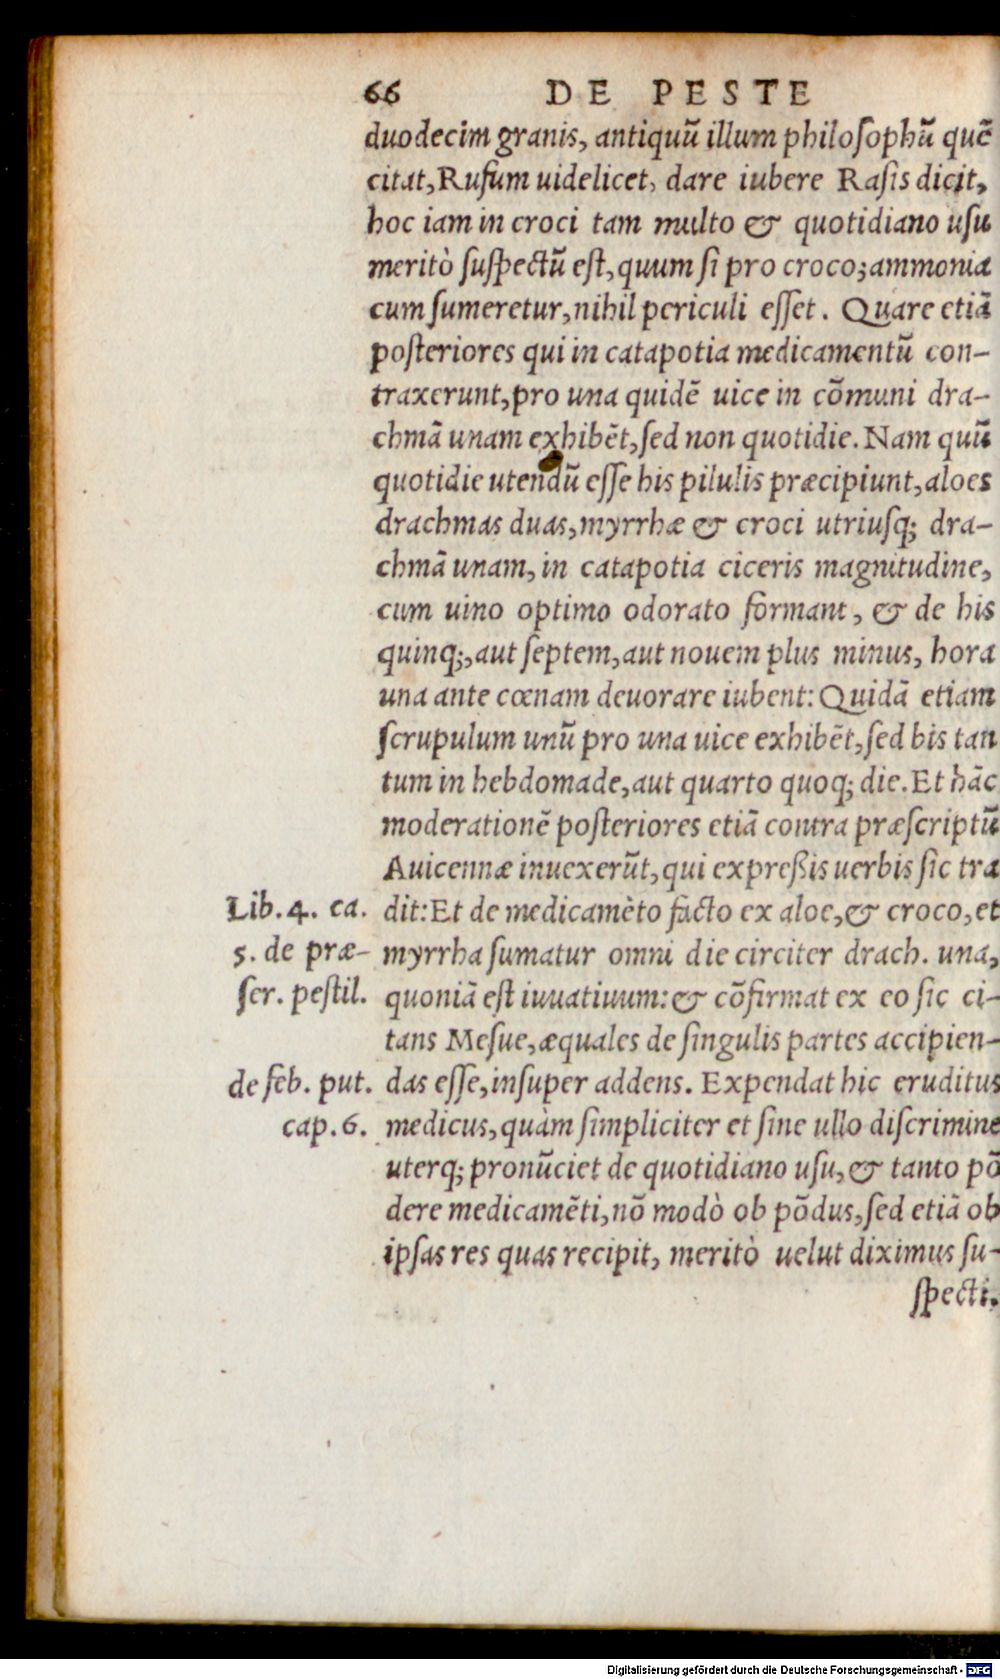 66 DE PESTE
duodecim granis, antiquũ illum philoſophũ quẽ
citat, Rufum uidelicet, dare iubere Raſis dicit,
hoc iam in croci tam multo & quotidiano uſu
meritò ſuſpectũ eſt, quum ſi pro croco, ammonia
cum ſumeretur, nihil periculi eſſet. Quare etiã
poſteriores qui in catapotia medicamentũ con-
traxerunt, pro una quidẽ uice in cõmuni dra-
chmã unam exhibẽt, ſed non quotidie. Nam quũ
quotidie utendũ eſſe his pilulis præcipiunt, aloes
drachmas duas, myrrhæ & croci utriuſq; dra-
chmã unam, in catapotia ciceris magnitudine,
cum uino optimo odorato formant, & de his
quinq;, aut ſeptem, aut nouem plus minus, hora
una ante cœnam deuorare iubent: Quidã etiam
ſcrupulum unũ pro una uice exhibẽt, ſed bis tan
tum in hebdomade, aut quarto quoq; die. Et hãc
moderationẽ poſteriores etiã contra præſcriptũ
Auicennæ inuexerũt, qui expreßis uerbis ſic tra
Lib. 4. ca. dit: Et de medicamẽto facto ex aloe, & croco, et
5. de præ- myrrha ſumatur omni die circiter drach. una,
ſer. peſtil. quoniã eſt iuuatiuum: & cõfirmat ex eo ſic ci-
tans Meſue, æquales de ſingulis partes accipien-
de feb. put. das eſſe, inſuper addens. Expendat hic eruditus
cap. 6. medicus, quàm ſimpliciter et ſine ullo diſcrimine
uterq; pronũciet de quotidiano uſu, & tanto põ
dere medicamẽti, nõ modò ob põdus, ſed etiã ob
ipſas res quas recipit, meritò uelut diximus ſu-
ſpecti.
Digitalisierung gefördert durch die Deutsche Forschungsgemeinschaft - DFG